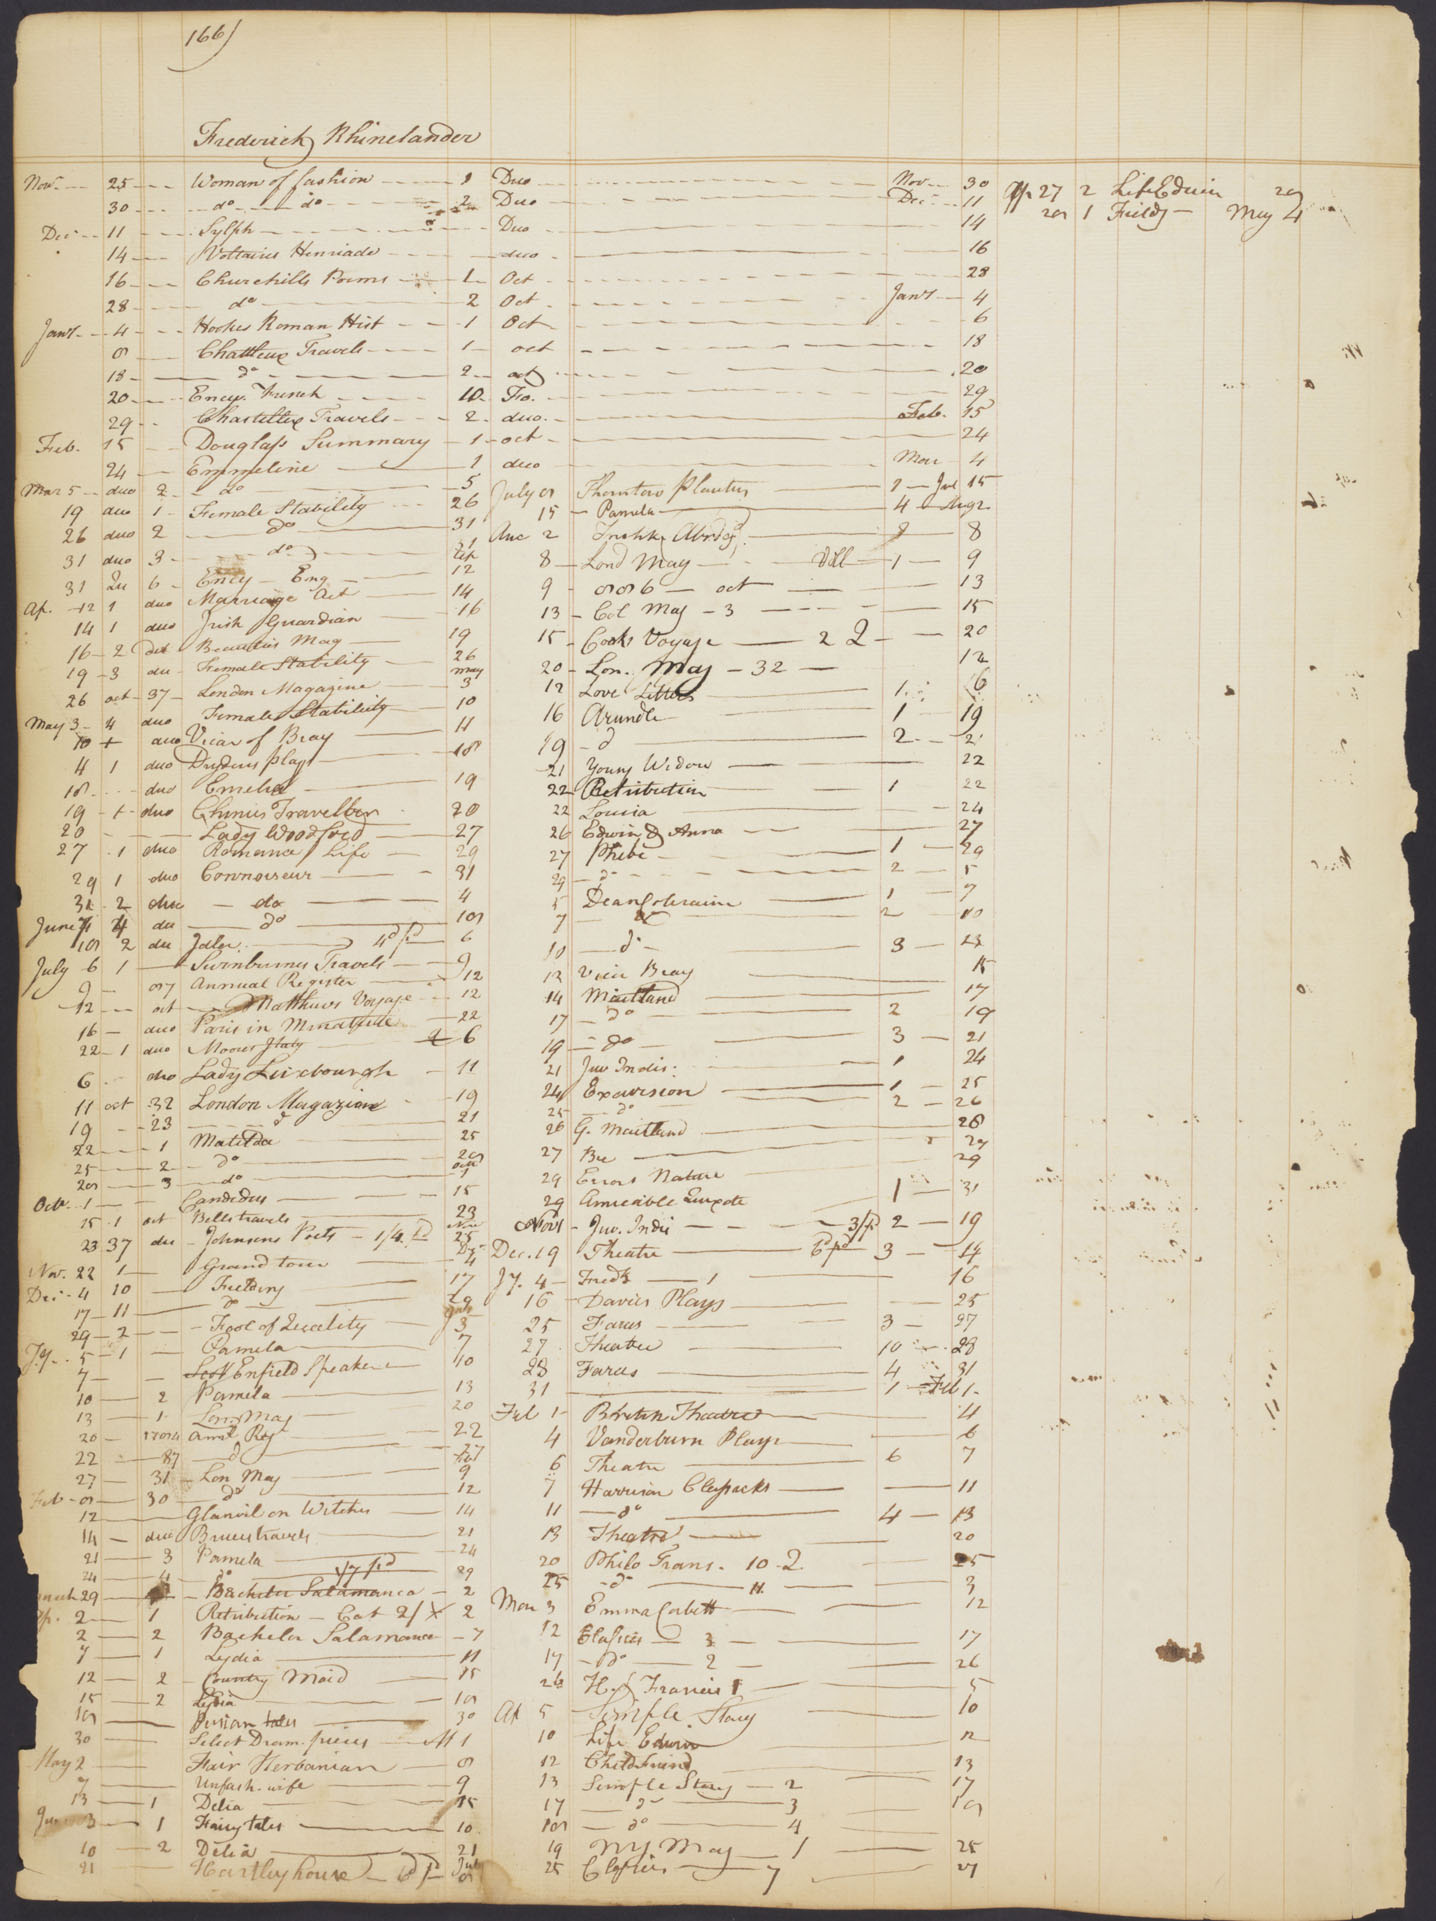 166)
Frederick Rhinelander
Nov. 25 Woman of fashion 1 Duo Nov 30
30 do do 2 Duo Dec 11
Dec 11 Sylph Duo 14
14 Voltaires Henriade duo 16
16 Churchills Poems 1 Oct 28
28 do 2 Oct Jany 4
Jany 4 Hookes Roman Hist 1 Oct 6
8 Chattleux Travels 1 oct 18
18 do 2 oct 20
20 Ency. French 10 Fo. 29
29 Chastellux Travels 2 duo. Feb. 15
Feb. 15 Douglass Summary 1 oct 24
24 Emmeline 1 duo Mar 4
Mar 5 duo 2 do 5
19 duo 1 Female Stability 26
26 duo 2 do 31
31 duo 3 do
31 6 Ency Eng 12
Ap. 12 1 duo Marriage Act 14
14 1 duo Irish Guardian 16
16 2 Beauties Mag 19
19 3 du Female Stability 26
26 oct 37 London Magazine may 3
May 3 4 duo Female Stability 10
10 duo Vicar of Bray 11
11 1 duo Drydens plays 18
18 duo Emelia 19
19 duo Chinese Traveller 20
20 Lady Woodford 27
27 1 duo Romance Life 29
29 1 duo Connoiseur 31
31 2 duo do 4
June 4 du do 18
18 2 du Idler 4d pd 6
July 6 1 Swinburnes Travels 9
9 87 Annual Register 12
12 oct Matthews Voyage 12
16 duo Paris in Miniature 22
22 1 duo Moores Italy 2 6
6 duo Lady Luxbourgh 11
11 oct 32 London Magazine 19
19 23 d 21
22 1 Matilda 25
25 2 do 28
28 3 do 1
Octr. 1 Candidus 15
15 1 oct Bells travels 23
23 37 du Johnsons Poets 1/4 pd 25
Nov. 22 1 Grand tour 4
Dec 4 10 Fielding 17
17 11 do 29
29 2 Fool of Quality 5
Jy. 5 1 Pamela 7
7 Enfield Speaker 10
10 2 Pamela 13
13 1 Lon. Mag 20
20 1784 Annl Reg 22
22 87 d 27
27 31 Lon Mag 9
Feb 8 30 do 12
12 Glanvil on Witches 14
14 duo Bruces travels 21
21 3 Pamela 24
24 4 do 1/7 pd 29
march 29 Bachelor Salamanca 2
Ap. 2 1 Retribution Cat 2/ 2
2 2 Bachelor Salamanca 7
7 1 Lydia 11
12 2 Country Maid 15
15 2 Lydia 18
18 Persian tales 30
30 Select Dram. pieces M 1
May 2 Fair Herbanian 8
7 Unfash. wife 9
13 1 Delia 15
Jun 3 1 Fairy tales 10
10 2 Delia 21
21 Hartley house 6d pd July 8
July 8 Thorntons Plautus 1 Jul 15
15 Pamela 4 Aug 2
Aug 2 Abrdgd. 8
8 Lond Mag Vol 1 9
9 886 oct 13
13 Col Mag 3 15
15 Cooks Voyage 2 2 20
20 Lon. Mag 32 12
12 Love Letters 1 6
16 Arundle 1 19
19 d 2 21
21 Young Widow 22
22 Retribution 1 22
22 Louisa 24
26 Edwin & Anna 27
27 Phebe 1 29
29 do 2 5
5 Dean Coleraine 1 7
7 do 2 10
10 do 3 23
12 Vicar Bray 15
14 Maitland 17
17 do 2 19
19 do 3 21
21 Juv Indis: 1 24
24 Excursion 1 25
25 do 2 26
26 G. Maitland 28
27 Bee 29
29 Errors Nature 29
29 Amicable Quixote 1 31
Nov Juv. Indis 3/pd 2 19
Dec. 19 Theatre 6d pd 3 14
Jy. 4 Fredk 1 16
16 Davies Plays 25
25 Farces 3 27
27 Theatre 10 28
28 Farces 4 31
31 1 Feb 1
Feb 1 British Theatre 4
4 Vanderburn Plays 6
6 Theatre 6 7
7 Harrison Classicks 11
11 do 4 13
13 Theatre 20
20 Philo Trans. 10 2 25
25 do 11 3
Mar 3 Emma Corbett 12
12 Classics 3 17
17 do 2 26
26 H. of Francis 1 5
Ap 5 Simple Story 10
10 Life Edwin 12
12 Childs friend 13
13 Simple Story 2 17
17 do 3 18
18 do 4
19 NY Mag 1 25
25 Classics 7 27
Ap 27 2 Life Edwin 28
28 1 Fieldg May 4